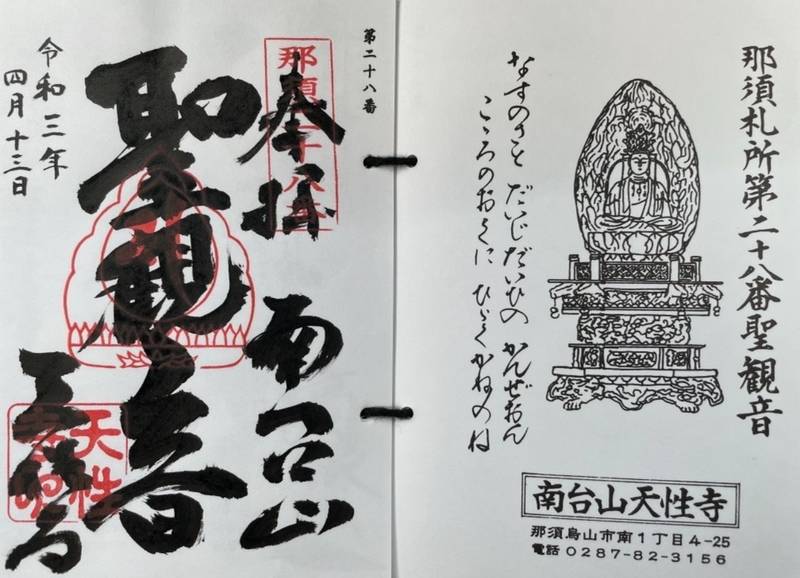 那須札所第二十八番聖観音
なすのさと だいじだいひの かんぜおん
こゝろのおくに ひゞく かねのね
南台山天性寺
那須烏山市南1丁目4-25
電話 0287-82-3156
第二十八番
那須二十八番
奉拝
南台山
聖観音
天性寺
令和三年
四月十三日